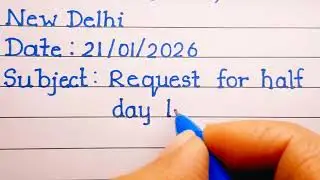 New Delhi
Date : 21/01/2026
Subject : Request for half
day l